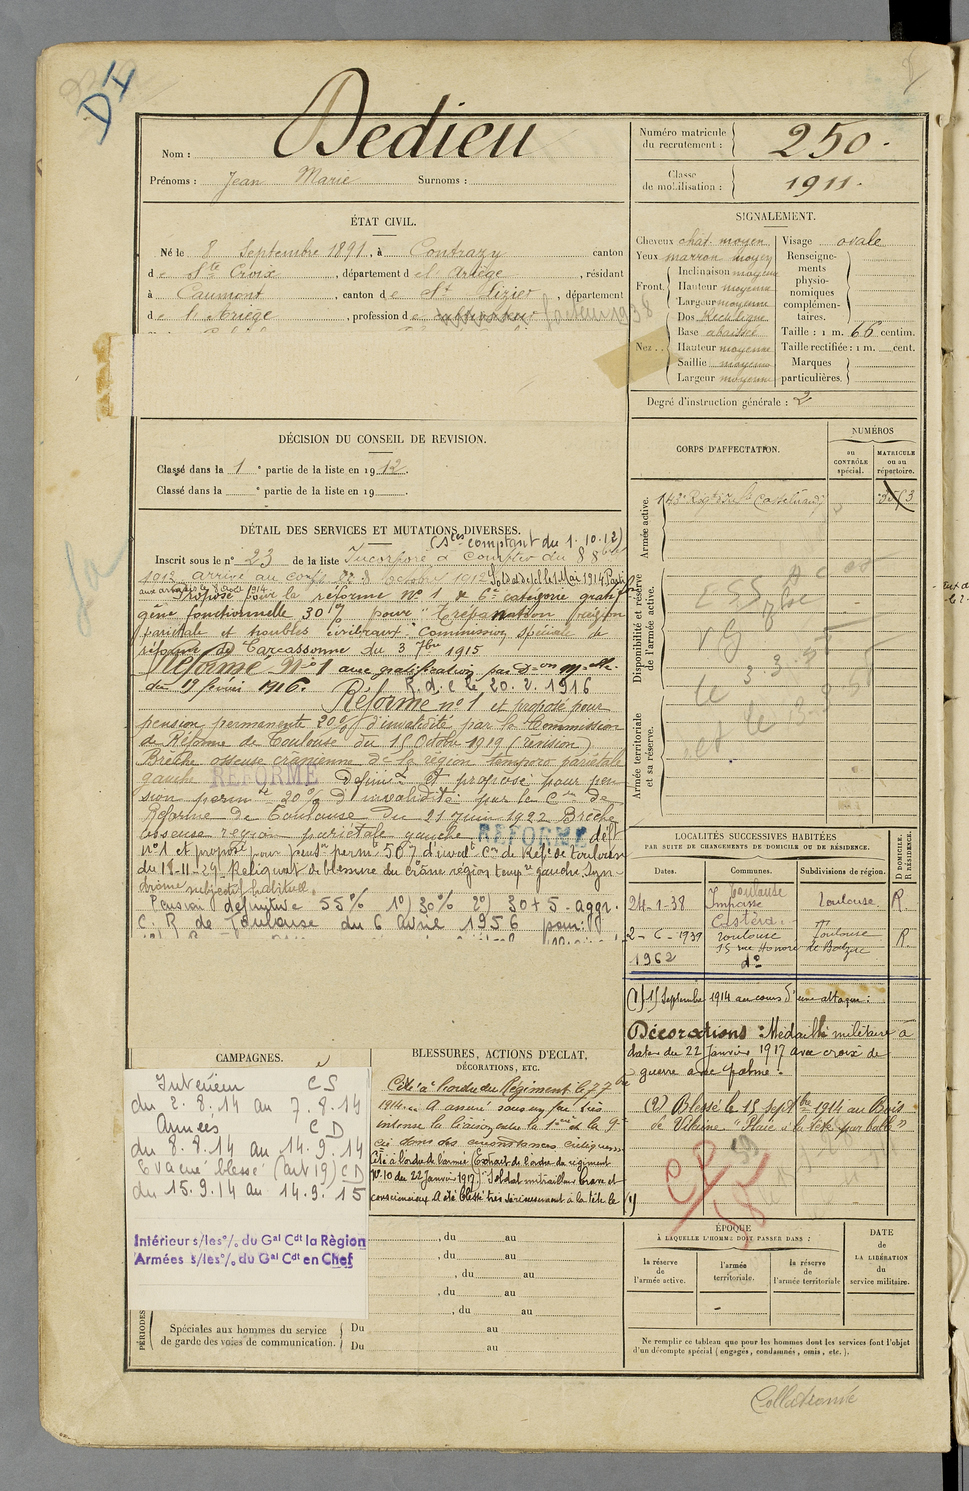 DI
Nom : Dedieu
Prénoms : Jean Marie Surnoms :
Numéro matricule du recrutement : 250.
Classe de mobilisation : 1911.
ÉTAT CIVIL.
Né le 8 Septembre 1891, à Contrazy canton
de Ste Croix, département de l'Ariège, résidant
à Caumont, canton de St Lizier, département
de l'Ariège, profession de cultivateur facteur 1938
SIGNALEMENT.
Cheveux chât. moyen
Yeux marron moyen
Front. Inclinaison moyenne
Hauteur moyenne
Largeur moyenne
Nez.. Dos Rectiligne
Base abaissée
Hauteur moyenne
Saillie moyenne
Largeur moyenne
Visage ovale
Renseignements physionomiques complémentaires.
Taille : 1 m. 66 centim.
Taille rectifiée : 1 m. cent.
Marques particulières.
Degré d'instruction générale : 2
DÉCISION DU CONSEIL DE REVISION.
Classé dans la 1e partie de la liste en 1912.
Classé dans la e partie de la liste en 19
CORPS D'AFFECTATION.
NUMÉROS
au CONTRÔLE spécial.
MATRICULE ou au répertoire.
Armée active.
Disponibilité et réserve de l'armée active.
Armée territoriale et sa réserve.
DÉTAIL DES SERVICES ET MUTATIONS DIVERSES.
(Sces comptant du 1.10.12)
Inscrit sous le n° 23 de la liste Incorporé à compter du 8 8bre
1912 arrivé au corps le 8 Octobre 1912. Soldat de 1e cl le 1 Mai 1914. Parti
aux armées le 8 Août 1914
Proposé pour la réforme N° 1 & 6e catégorie gratif
gêne fonctionnelle 30% pour "Trépanation région
pariétale et troubles cérébraux" Commission spéciale de
réforme de Carcassonne du 3 7bre 1915
Réformé N°1 avec gratification par Don Mlle
du 17 février 1916. R.d.c le 20.2.1916
Réformé n°1 et proposé pour
pension permanente 20% d'invalidité par la Commission
de Réforme de Toulouse du 15 Octobre 1919 (révision)
Brèche osseuse crânienne de la région temporo pariétale
gauche REFORMÉ Définit et proposé pour pen
sion permte 20% d'invalidité par la Con de
Réforme de Toulouse du 21 Juin 1922 Brèche
osseuse région pariétale gauche REFORMÉ déft
n°1 et proposé pour pension permte 50% d'invalté Con de Refe de Toulouse
du 18-11-29. Reliquat de blessure du crâne région tempre gauche. Syn-
drôme subjectif habituel.
Pension définitive 55% 1°) 30% 2°) 30+5 - aggr.
C. R de Toulouse du 6 Avril 1956 pour:
LOCALITÉS SUCCESSIVES HABITÉES
PAR SUITE DE CHANGEMENTS DE DOMICILE OU DE RÉSIDENCE.
Dates. Communes. Subdivisions de région. D DOMICILE. R RÉSIDENCE.
24-1-38 Toulouse Impasse Cistéra Toulouse R.
2-6-1939 Toulouse Toulouse R.
15 rue Honoré de Balzac
1962 d°
(1) 15 Septembre 1914 au cours d'une attaque :
Décorations : Médaille militaire à
dater du 22 Janvier 1917 avec croix de
guerre avec palme.
(2) Blessé le 15 septbre 1914 au Bois
de Ville "Plaie à la tête par balle"
CAMPAGNES.
Intérieur CS
du 2.8.14 au 7.8.14
Armées CD
du 8.8.14 au 14.9.14
Evacué blessé (art 19) CD
du 15.9.14 au 14.9.15
Intérieur s/les °/. du Gal Cdt la Règion
Armées s/les °/. du Gal Cdt en Chef
BLESSURES, ACTIONS D'ÉCLAT,
DÉCORATIONS, ETC.
Cité à l'ordre du Régiment le 27
1914. A assuré sous un feu très
intense la liaison entre la 1ère et la 9e
Cie dans des circonstances critiques
Cité à l'ordre de l'armée (Extrait de l'ordre du régiment
N° 10 du 22 Janvier 1917.) "Soldat mitrailleur brave et
consciencieux. A été blessé très sérieusement à la tête le (1)
, du au
, du au
, du au
, du au
, du au
PÉRIODES
Spéciales aux hommes du service de garde des voies de communication.
Du au
Du au
ÉPOQUE
À LAQUELLE L'HOMME DOIT PASSER DANS :
la réserve de l'armée active.
l'armée territoriale.
la réserve de l'armée territoriale
DATE de LA LIBÉRATION du service militaire.
Ne remplir ce tableau que pour les hommes dont les services font l'objet
d'un décompte spécial (engagés, condamnés, omis, etc.).
Collationné